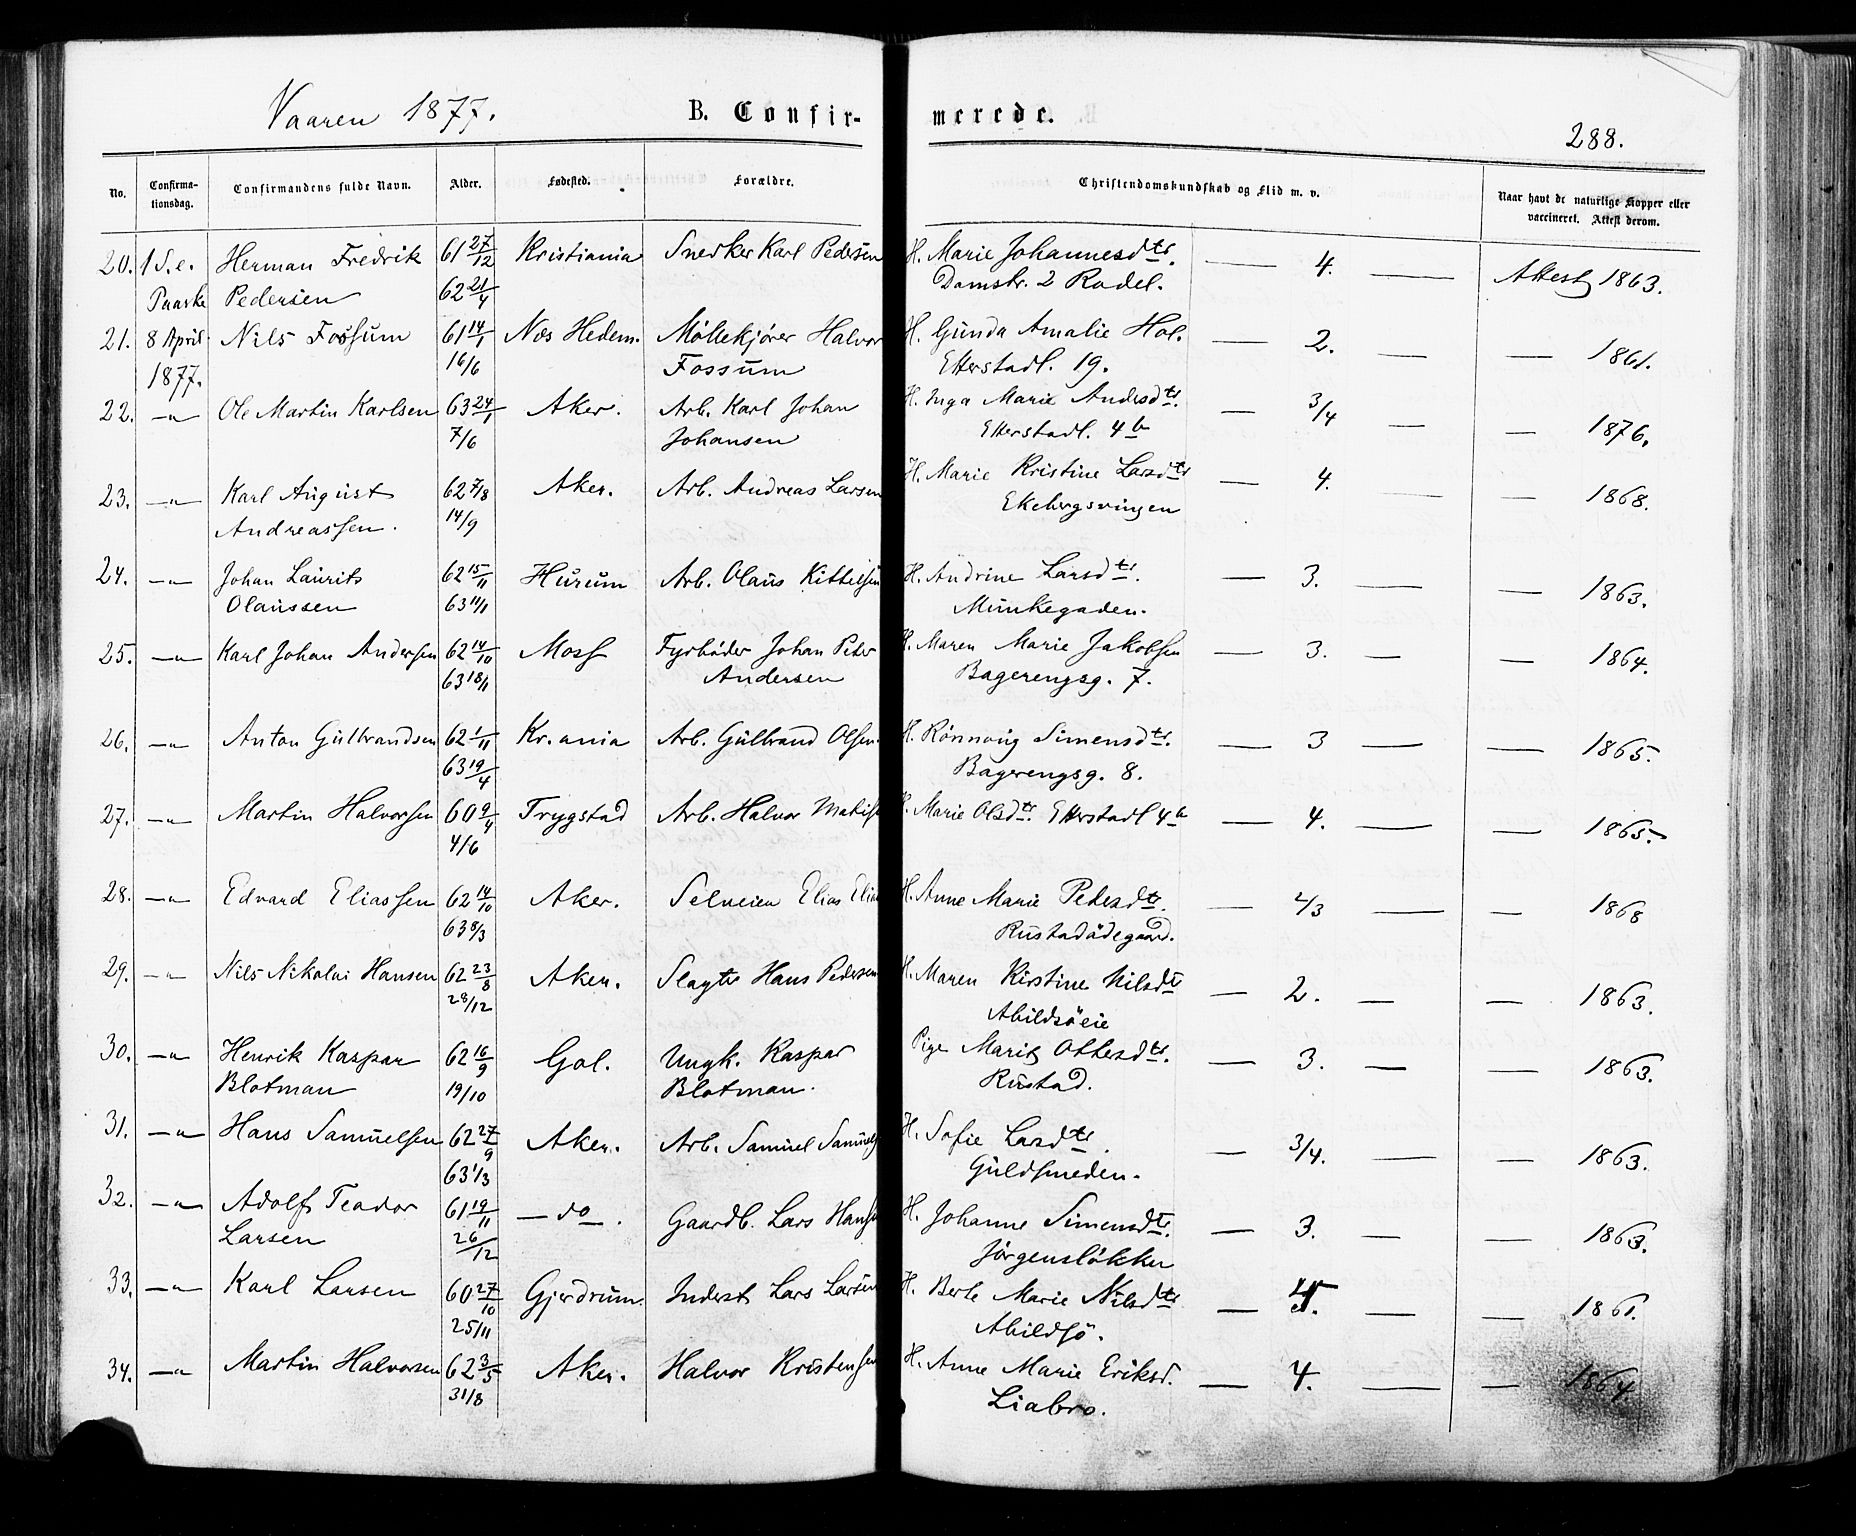 Vaaren 1877.
B. Confir-
merede.
288.
No. Confirma-tionsdag. Confirmandens fulde Navn. Alder. Fødested. Forældre. Christendomskundskab og Flid m. v. Naar havt de naturlige Kopper eller vaccineret. Attest derom.
20. 1 S. e. Herman Fredrik 61 27/12 Kristiania Snedker Karl Pedersen H. Marie Johannesdtr. — 4. — Attest 1863.
Paaske Pedersen 62 21/4 Damstr. 2 Rodel.
21. 8 April Nils Fossum 61 14/1 Næs Hedem. Møllekjører Halvor H. Gunda Amalie Hol. — 2. — — 1861.
1877. 16/6 Fossum Etterstadl. 19.
22. —„— Ole Martin Karlsen 63 24/1 Aker. Arb. Karl Johan H. Inga Marie Andersdtr. — 3/4 — 1876.
7/6 Johansen Etterstadl. 4b
23. —„— Karl August 62 7/8 Aker. Arb. Andreas Larsen H. Marie Kristine Larsdtr — 4. — — 1868.
Andreassen. 14/9 Ekebergsvingen
24. —„— Johan Laurits 62 15/11 Hurum Arb. Olaus Kittelsen H. Andrine Larsdtr. — 3. — — 1863.
Olaussen 63 11/1 Munkegaden.
25. —„— Karl Johan Andersen 62 14/10 Moss Fyrbøder Johan Peter H. Maren Marie Jakobsen — 3. — — 1864.
63 18/1 Andersen Bagerengsg. 7.
26. —„— Anton Gulbrandsen 62 1/11 Kr.ania Arb. Gulbrand Olsen H. Rønnaug Simensdtr. — 3 — — 1865.
63 19/4 Bagerengsg. 8.
27. —„— Martin Halvorsen 60 9/4 Trygstad Arb. Halvor H. Marie Olsdtr. Etterstadl 4b — 4. — — 1865.
4/6
28. —„— Edvard Eliassen 62 14/10 Aker. Selveier Elias H. Anne Marie Pedersdtr. — 2/3 — — 1868
63 8/3 Rustadødegaard.
29. —„— Nils Nikolai Hansen 62 23/8 Aker. Slagter Hans Pedersen H. Maren Kirstine Nilsdtr — 2. — — 1863.
28/12 Abildsøeie
30. —„— Henrik Kaspar 62 16/9 Gol. Ungk. Kaspar Pige Marit Ottesdtr. — 3. — — 1863.
Blotman 19/10 Blotman. Rustad.
31. —„— Hans Samuelsen 62 27/9 Aker. Arb. Samuel H. Sofie Larsdtr. — 3/4. — — 1863.
63 1/3 Guldsmeden.
32. —„— Adolf Teodor 61 19/11 —do—. Gaardb. Lars H. Johanne Simensdtr. — 3. — — 1863.
Larsen 26/12 Jørgensløkken
33. —„— Karl Larsen 60 27/10 Gjerdrum. Inderst Lars Larsen H. Berte Marie Nilsdtr — — — 1861.
25/11 Abildsø.
34. —„— Martin Halvorsen 62 3/5 Aker. Halvor Kristensen H. Anne Marie Eriksd. — 4. — — 1864.
31/8 Liabro.